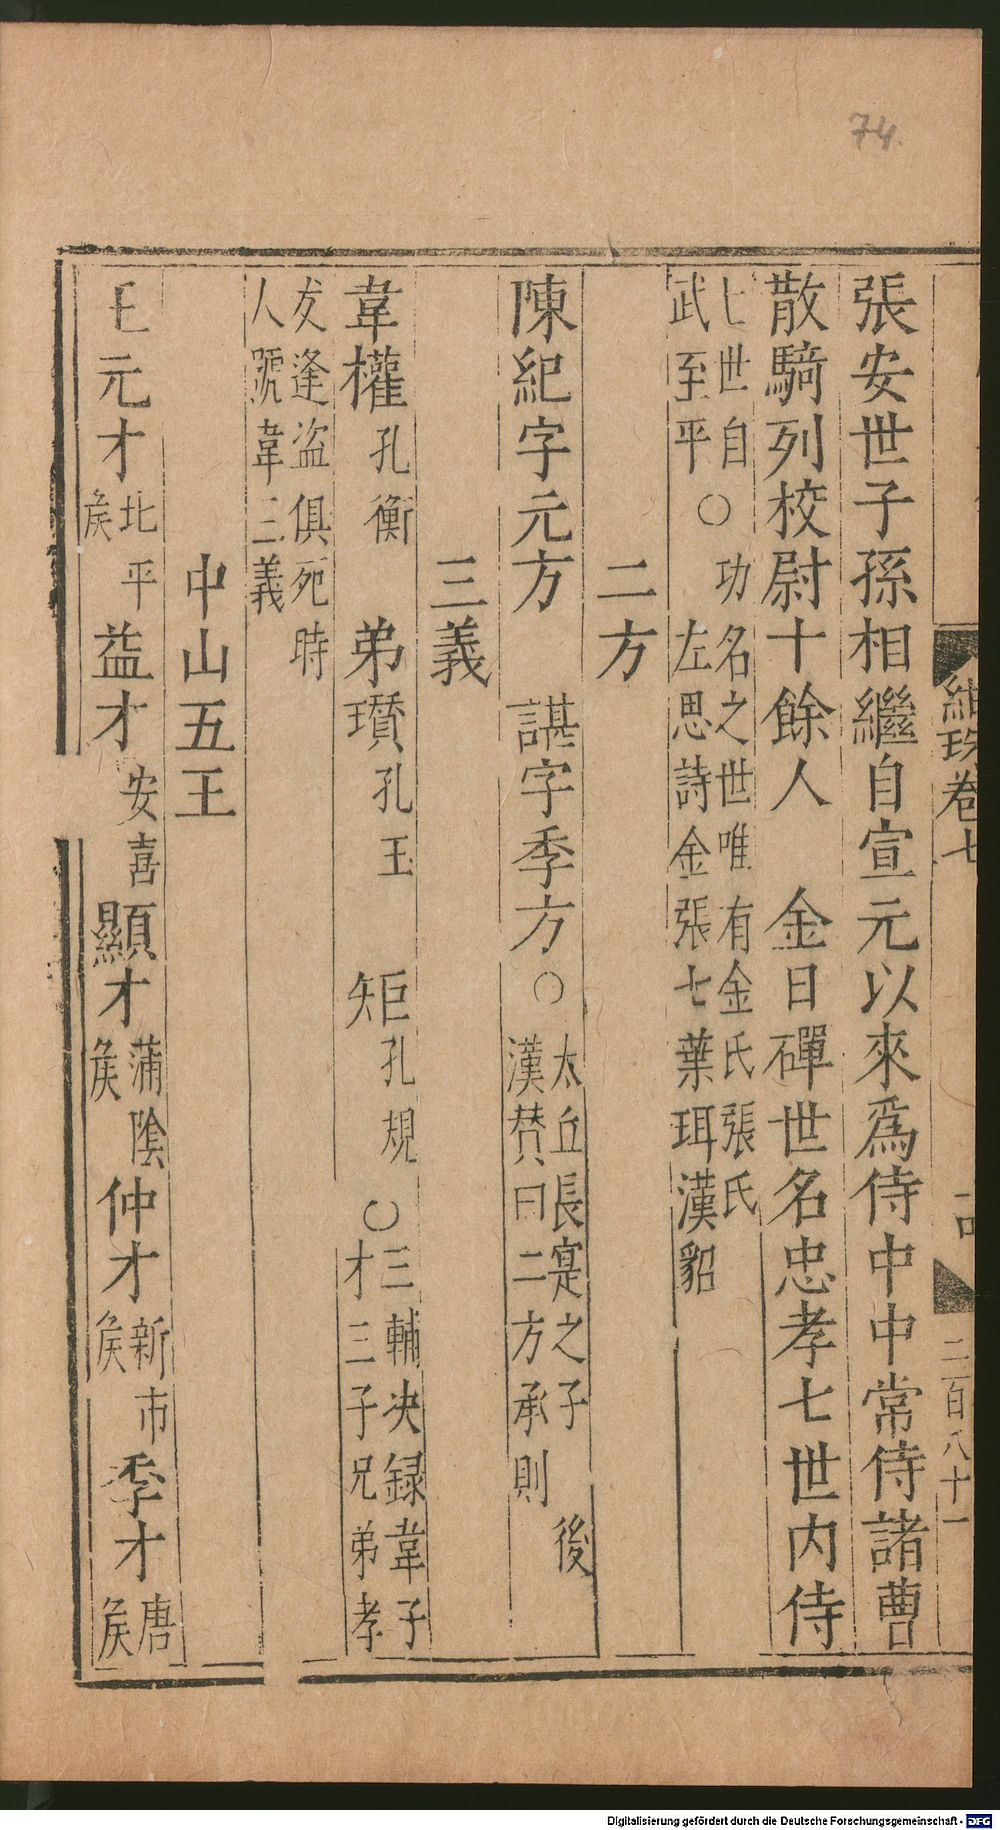 74.
紺珠卷七
二百八十一
張安世子孫相繼自宣元以來爲侍中中常侍諸曹
散騎列校尉十餘人　金日磾世名忠孝七世内侍
七世自　功名之世唯有金氏張氏
武至平〇左思詩金張七葉珥漢貂
二方
陳紀字元方　諶字季方〇
太丘長寔之子　後
漢贊曰二方承則
三義
韋權孔衡　弟瓚孔玉　矩孔規〇
三輔决録韋子
才三子兄弟孝
友逢盜俱死時
人號韋三義
中山五王
王元才北平矦益才安喜顯才蒲陰矦仲才新市矦季才唐矦
Digitalisierung gefördert durch die Deutsche Forschungsgemeinschaft - DFG